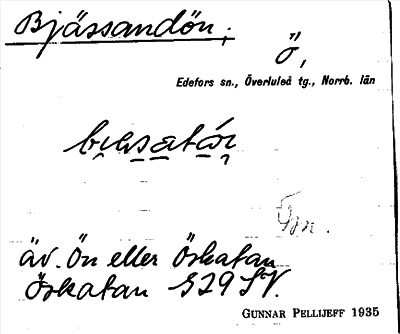 Bjässandön;
ö,
Edefors sn., Överluleå tg., Norrb. län
äv. Ön eller Öskatan
Öskatan S29 SV.
GUNNAR PELLIJEFF 1935